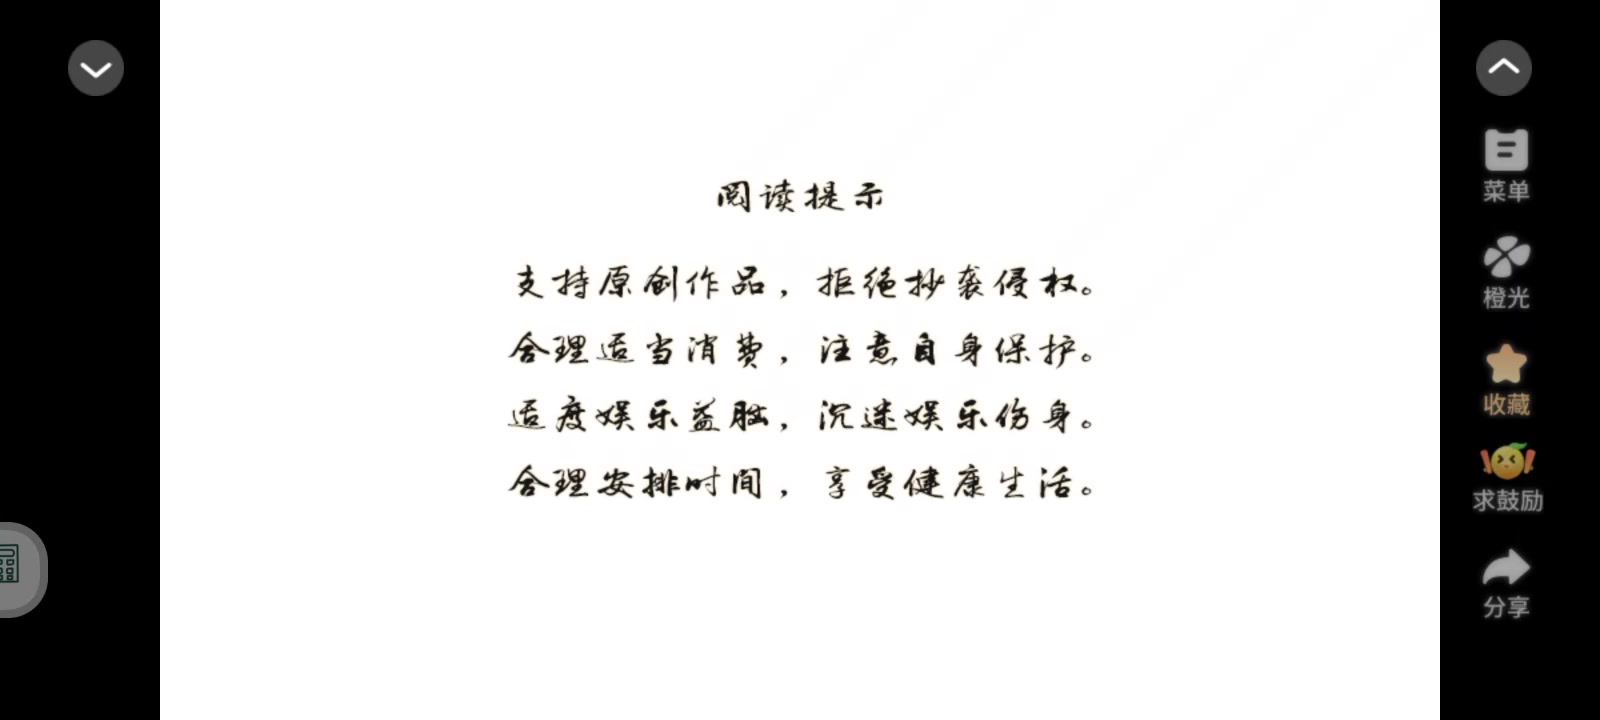 阅读提示
支持原创作品，拒绝抄袭侵权。
合理适当消费，注意自身保护。
适度娱乐益脑，沉迷娱乐伤身。
合理安排时间，享受健康生活。
菜单
橙光
收藏
求鼓励
分享